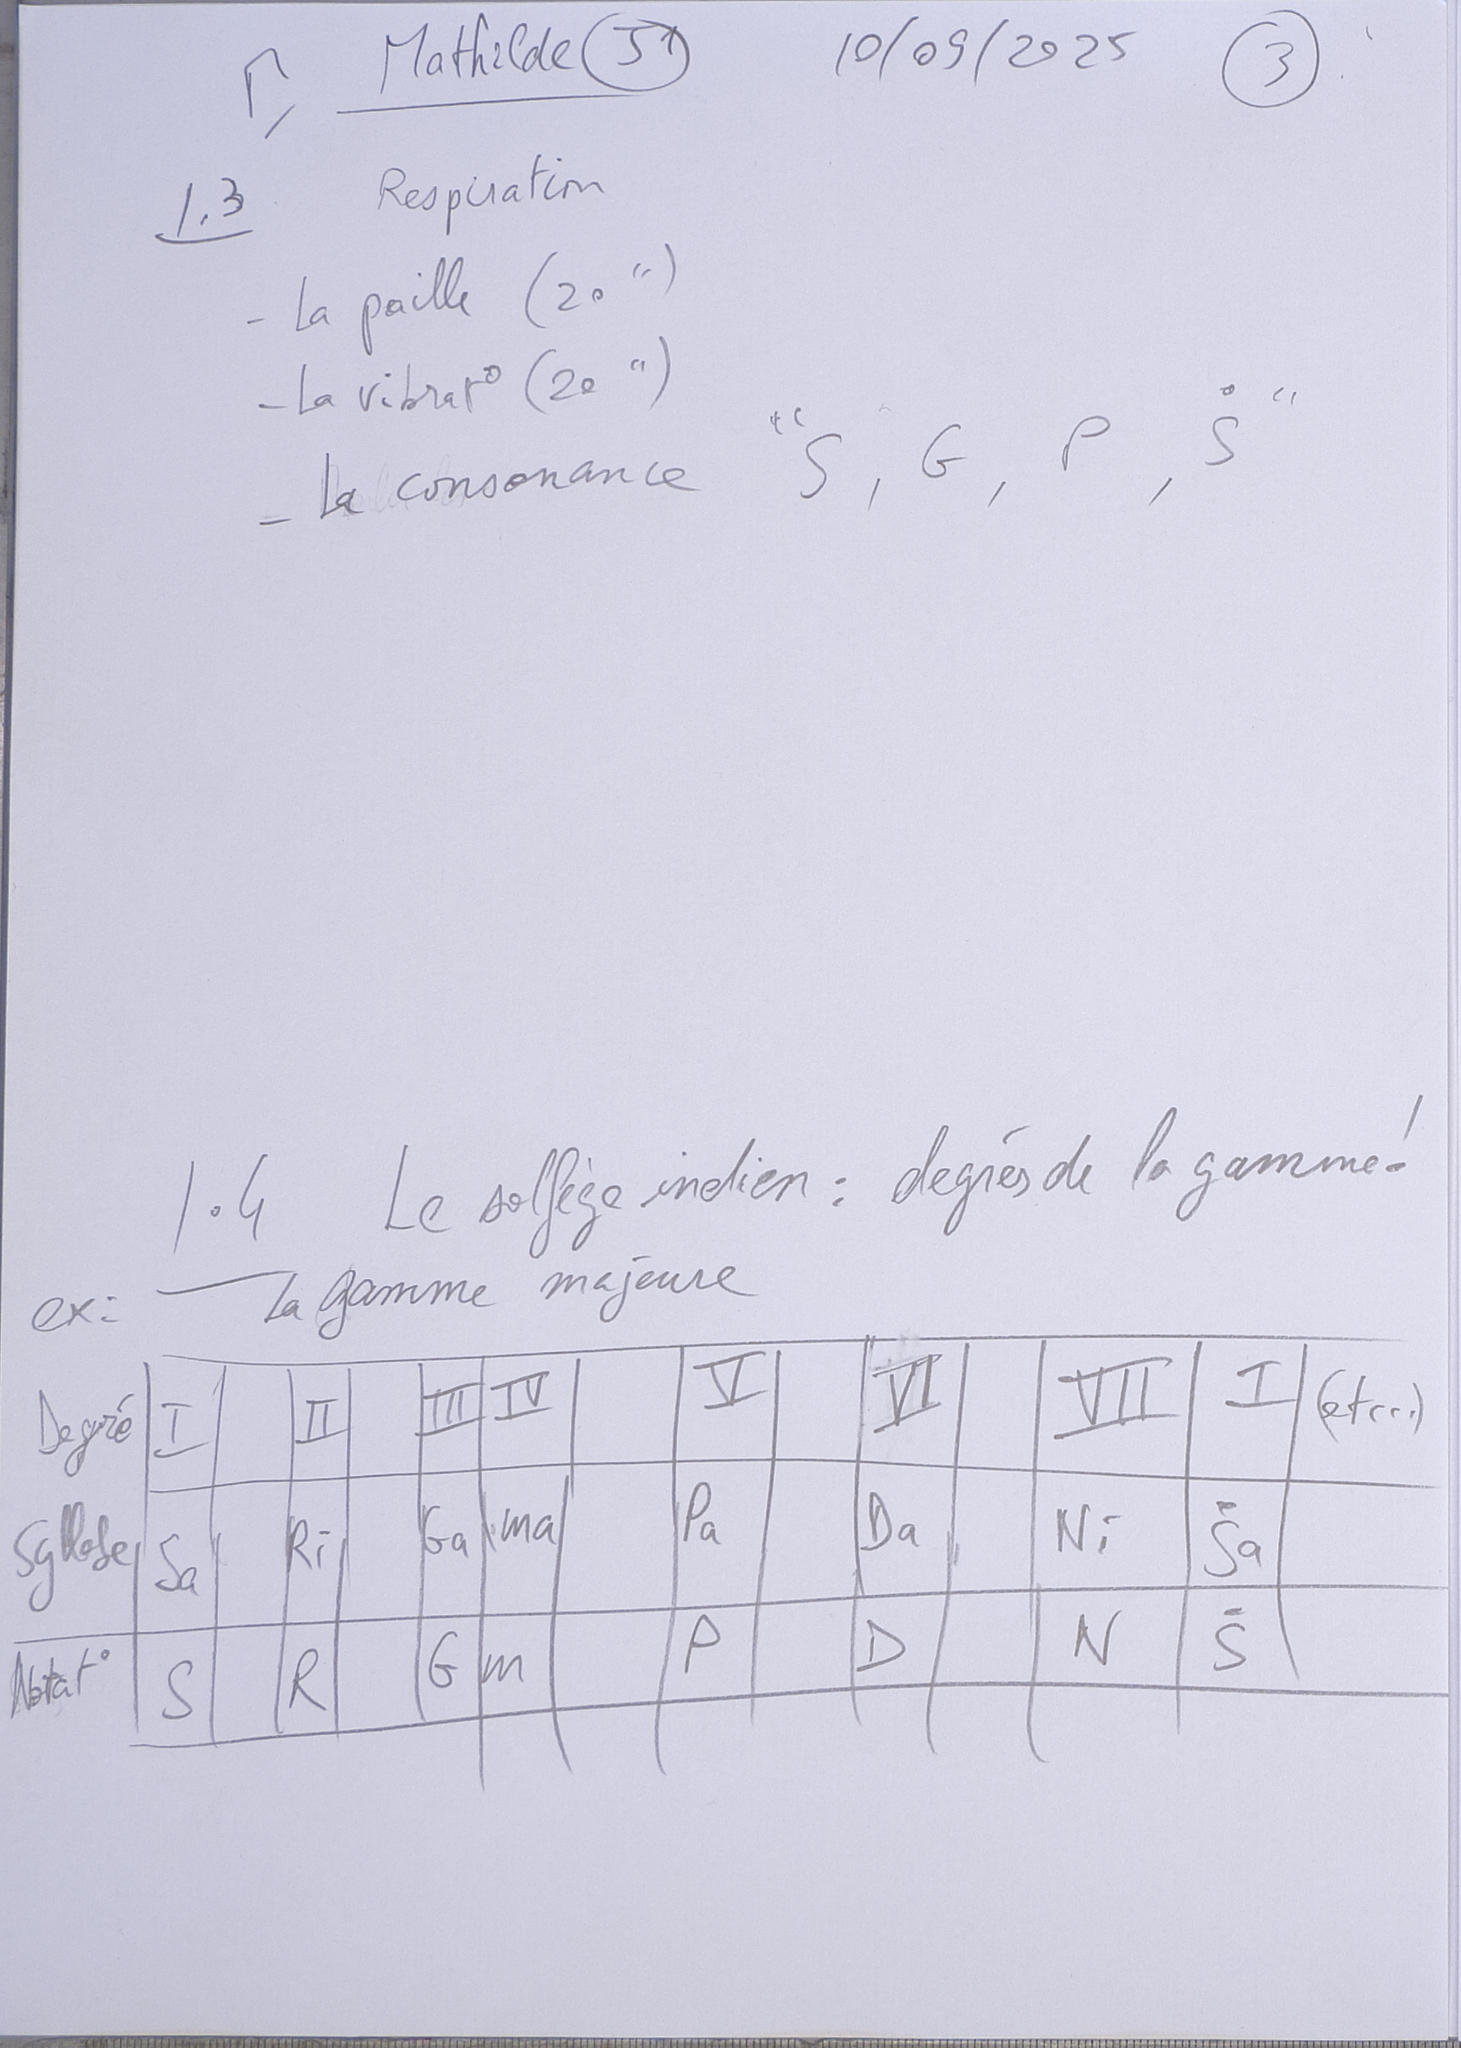 Mathilde 10/09/2025 3
1.3 Respiration
- La paille (20 ")
- La vibrat° (20 ")
- La consonance "S, G, P, Ṡ"
1.4 Le solfège indien : degrés de la gamme !
ex: La gamme majeure
Degré I II III IV V VI VII I (etc...)
Syllabe Sa Ri Ga ma Pa Da Ni Ṡa
Notat° S R G m P D N Ṡ